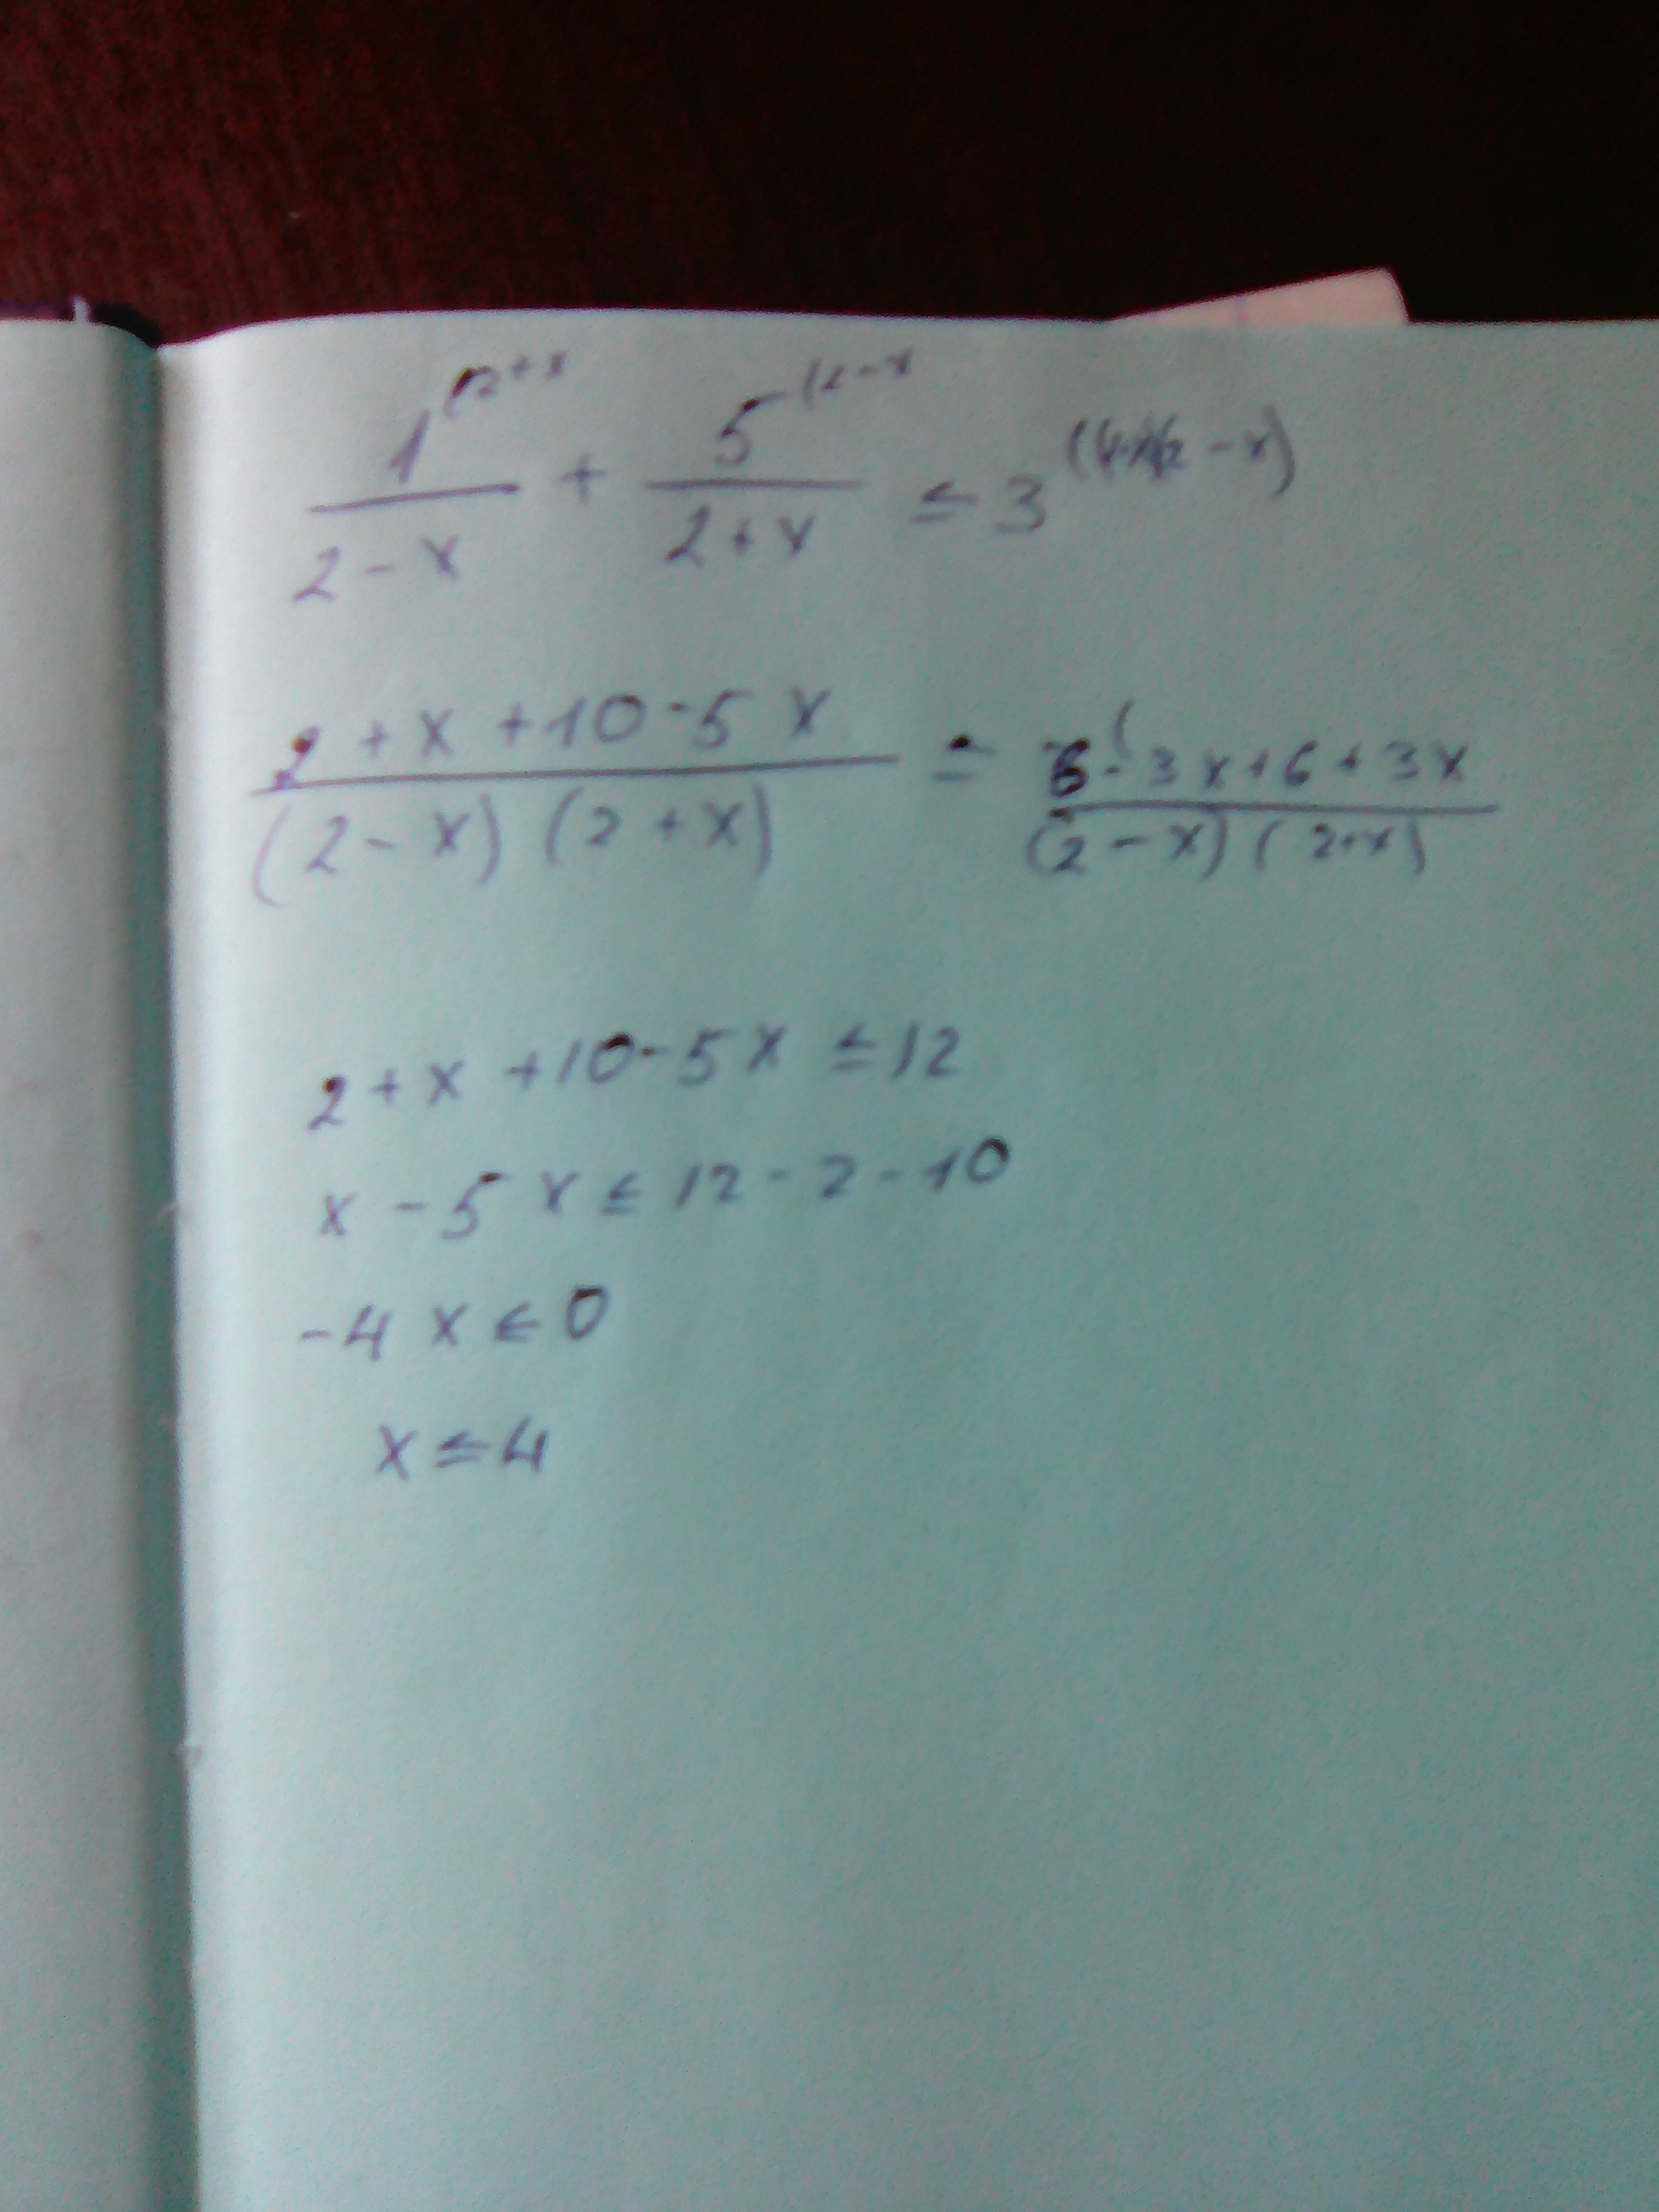 1^(2+x / 2-x + 5^(2-x / 2+x ≤ 3 -x)
2+x+10-5x / (2-x)(2+x) ≤ 6-3x+6+3x / (2-x)(2+x)
2+x+10-5x≤12
x-5x≤12-2-10
-4x≤0
x≤4